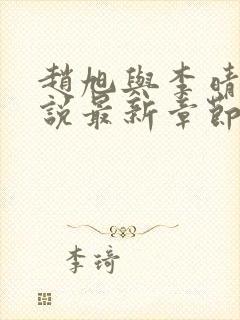 趙旭與李晴
說最新章節
李琦